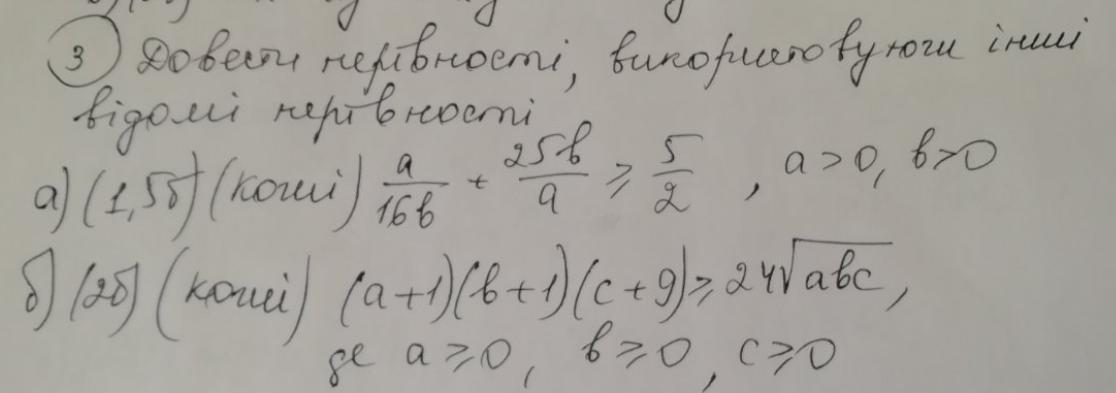 3 Довести нерівності, використовуючи інші
відомі нерівності
а) (1,5б) (коші) a/16b + 25b/a ≥ 5/2, a>0, b>0
б) (2б) (коші) (a+1)(b+1)(c+9)≥24√abc,
де a≥0, b≥0, c≥0